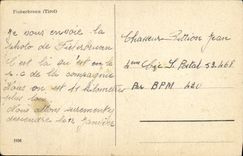 Fieberbrunn (Tirol)
Je vous envoie la
photo de Fieberbrunn
C'est là qu'est en
P.C de la compagnie
nous on est 15 kilometres
plus loin
Nous allons surement
descendre le janvier
Chasseur Pittion Jean
4eme Cie S. Postal 53.468
Par BPM 420